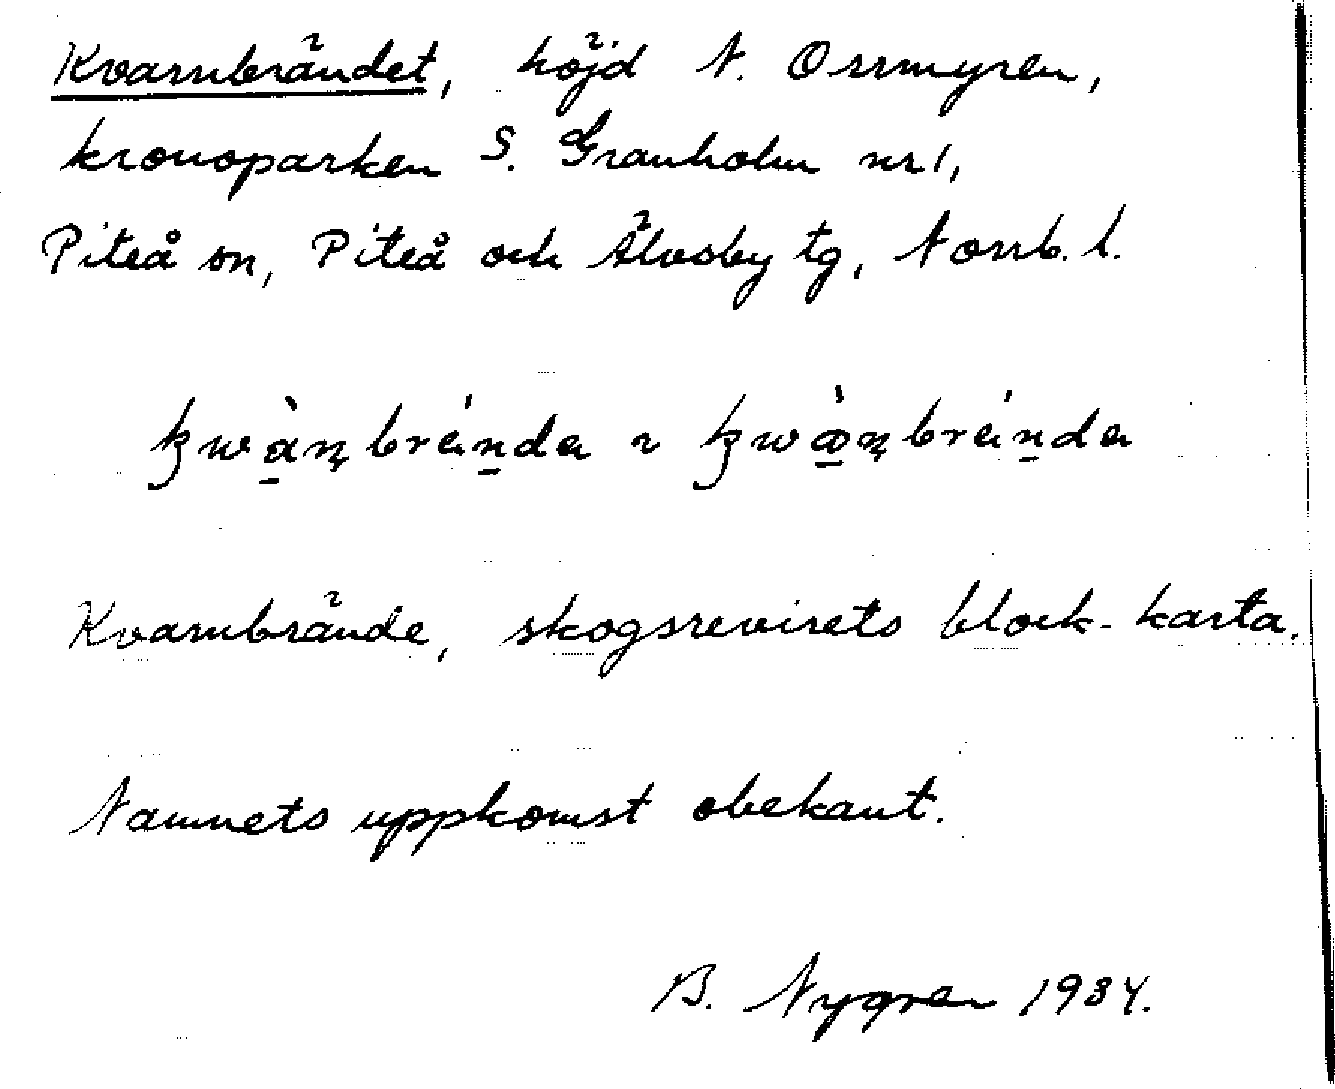 Kvarnbrändet, höjd N. Orrmyren,
kronoparken S. Granholm nr 1,
Piteå sn, Piteå och Älvsby tg, Norrb. l.
Kvarnbrände, skogsrevirets block-karta.
Namnets uppkomst obekant.
B. Nygren 1934.